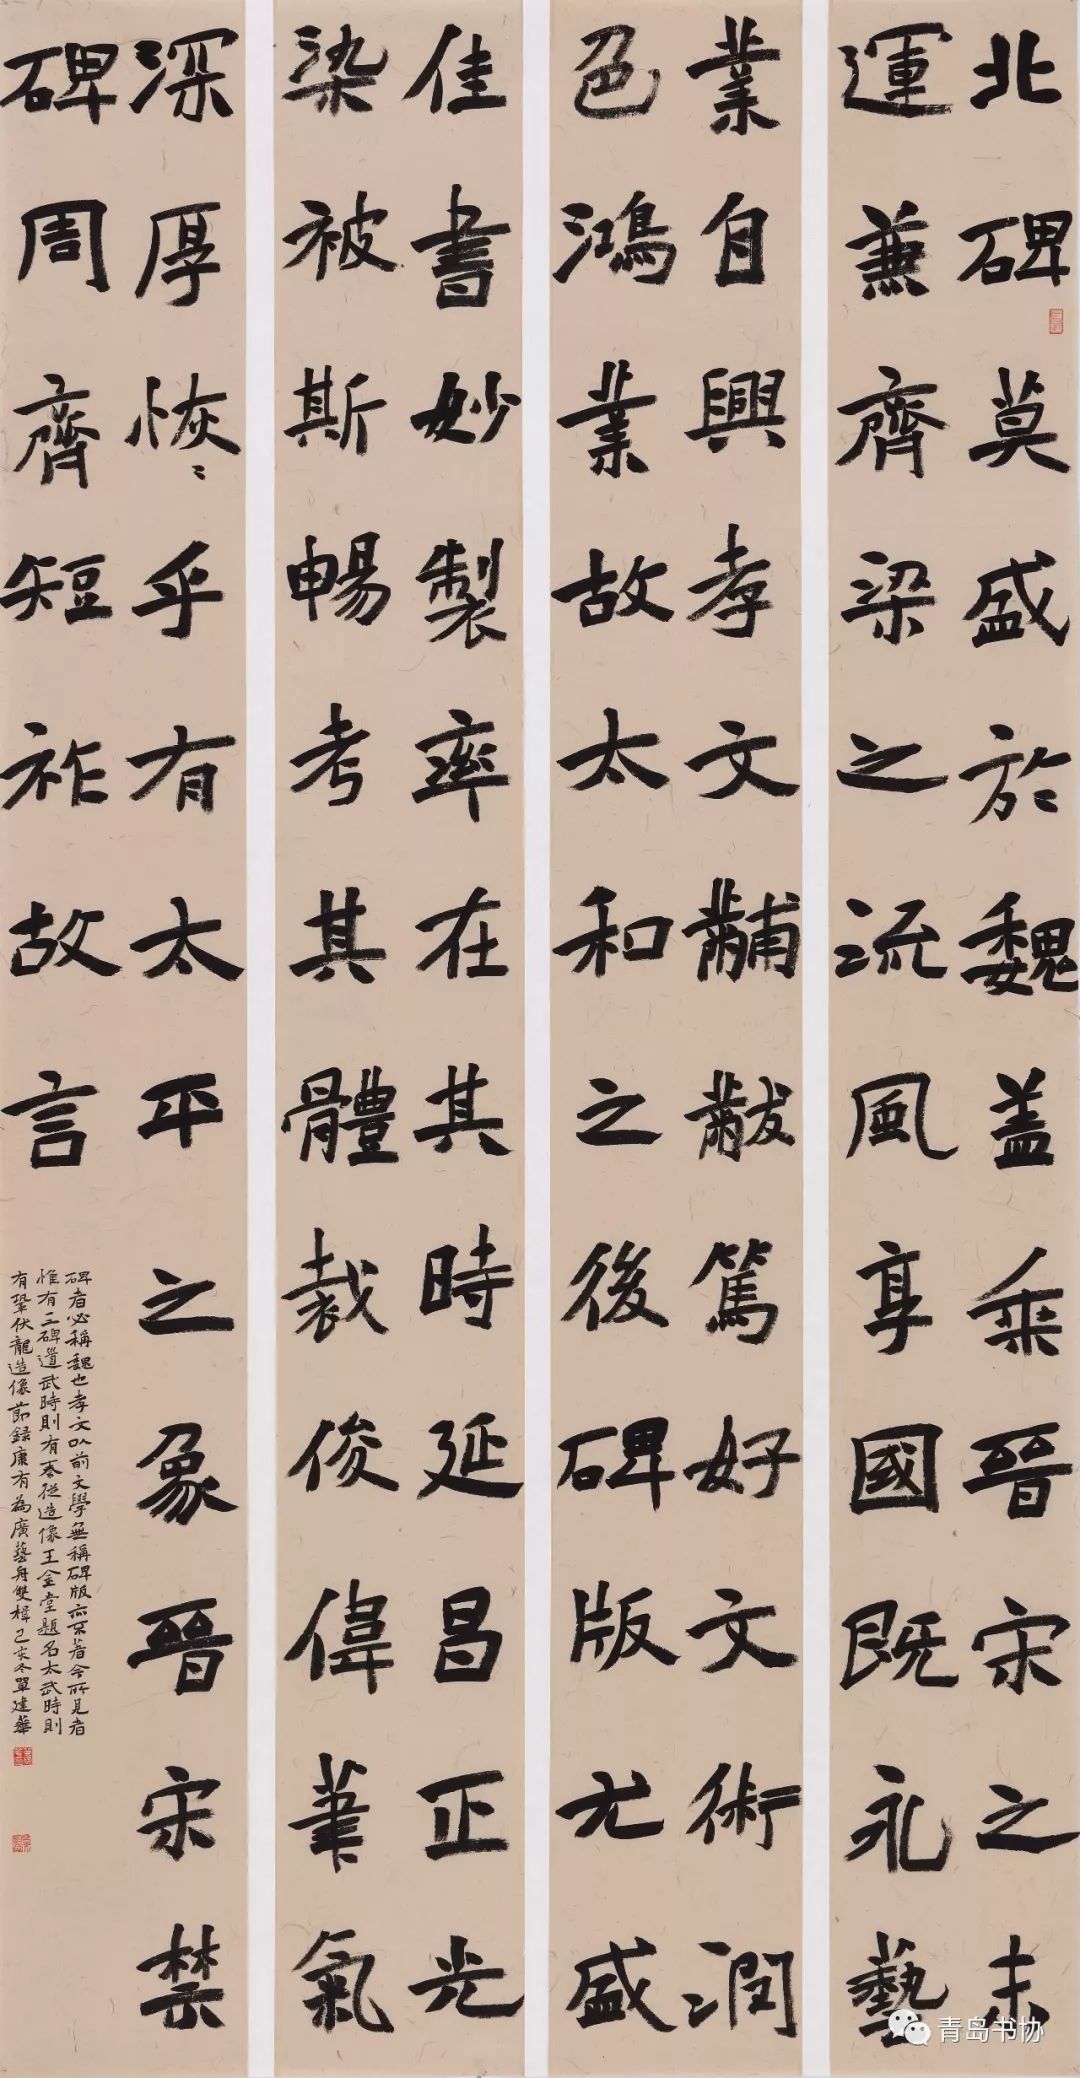 北碑莫盛於魏蓋乘晉宋之末
運兼齊梁之流風享國既永藝
業自興孝文黼黻篤好文術潤
色鴻業故太和之後碑版尤盛
佳書妙製率在其時延昌正光
染被斯暢考其體裁俊偉筆氣
深厚恢〻乎有太平之象晉宋禁
碑周齊短祚故言
碑者必稱魏也孝文以前文學無稱碑版亦不著今所見者
惟有三碑道武時則有秦從造像王金堂題名太武時則
有鞏伏龍造像節錄康有為廣藝舟雙楫己亥冬單建華
青岛书协